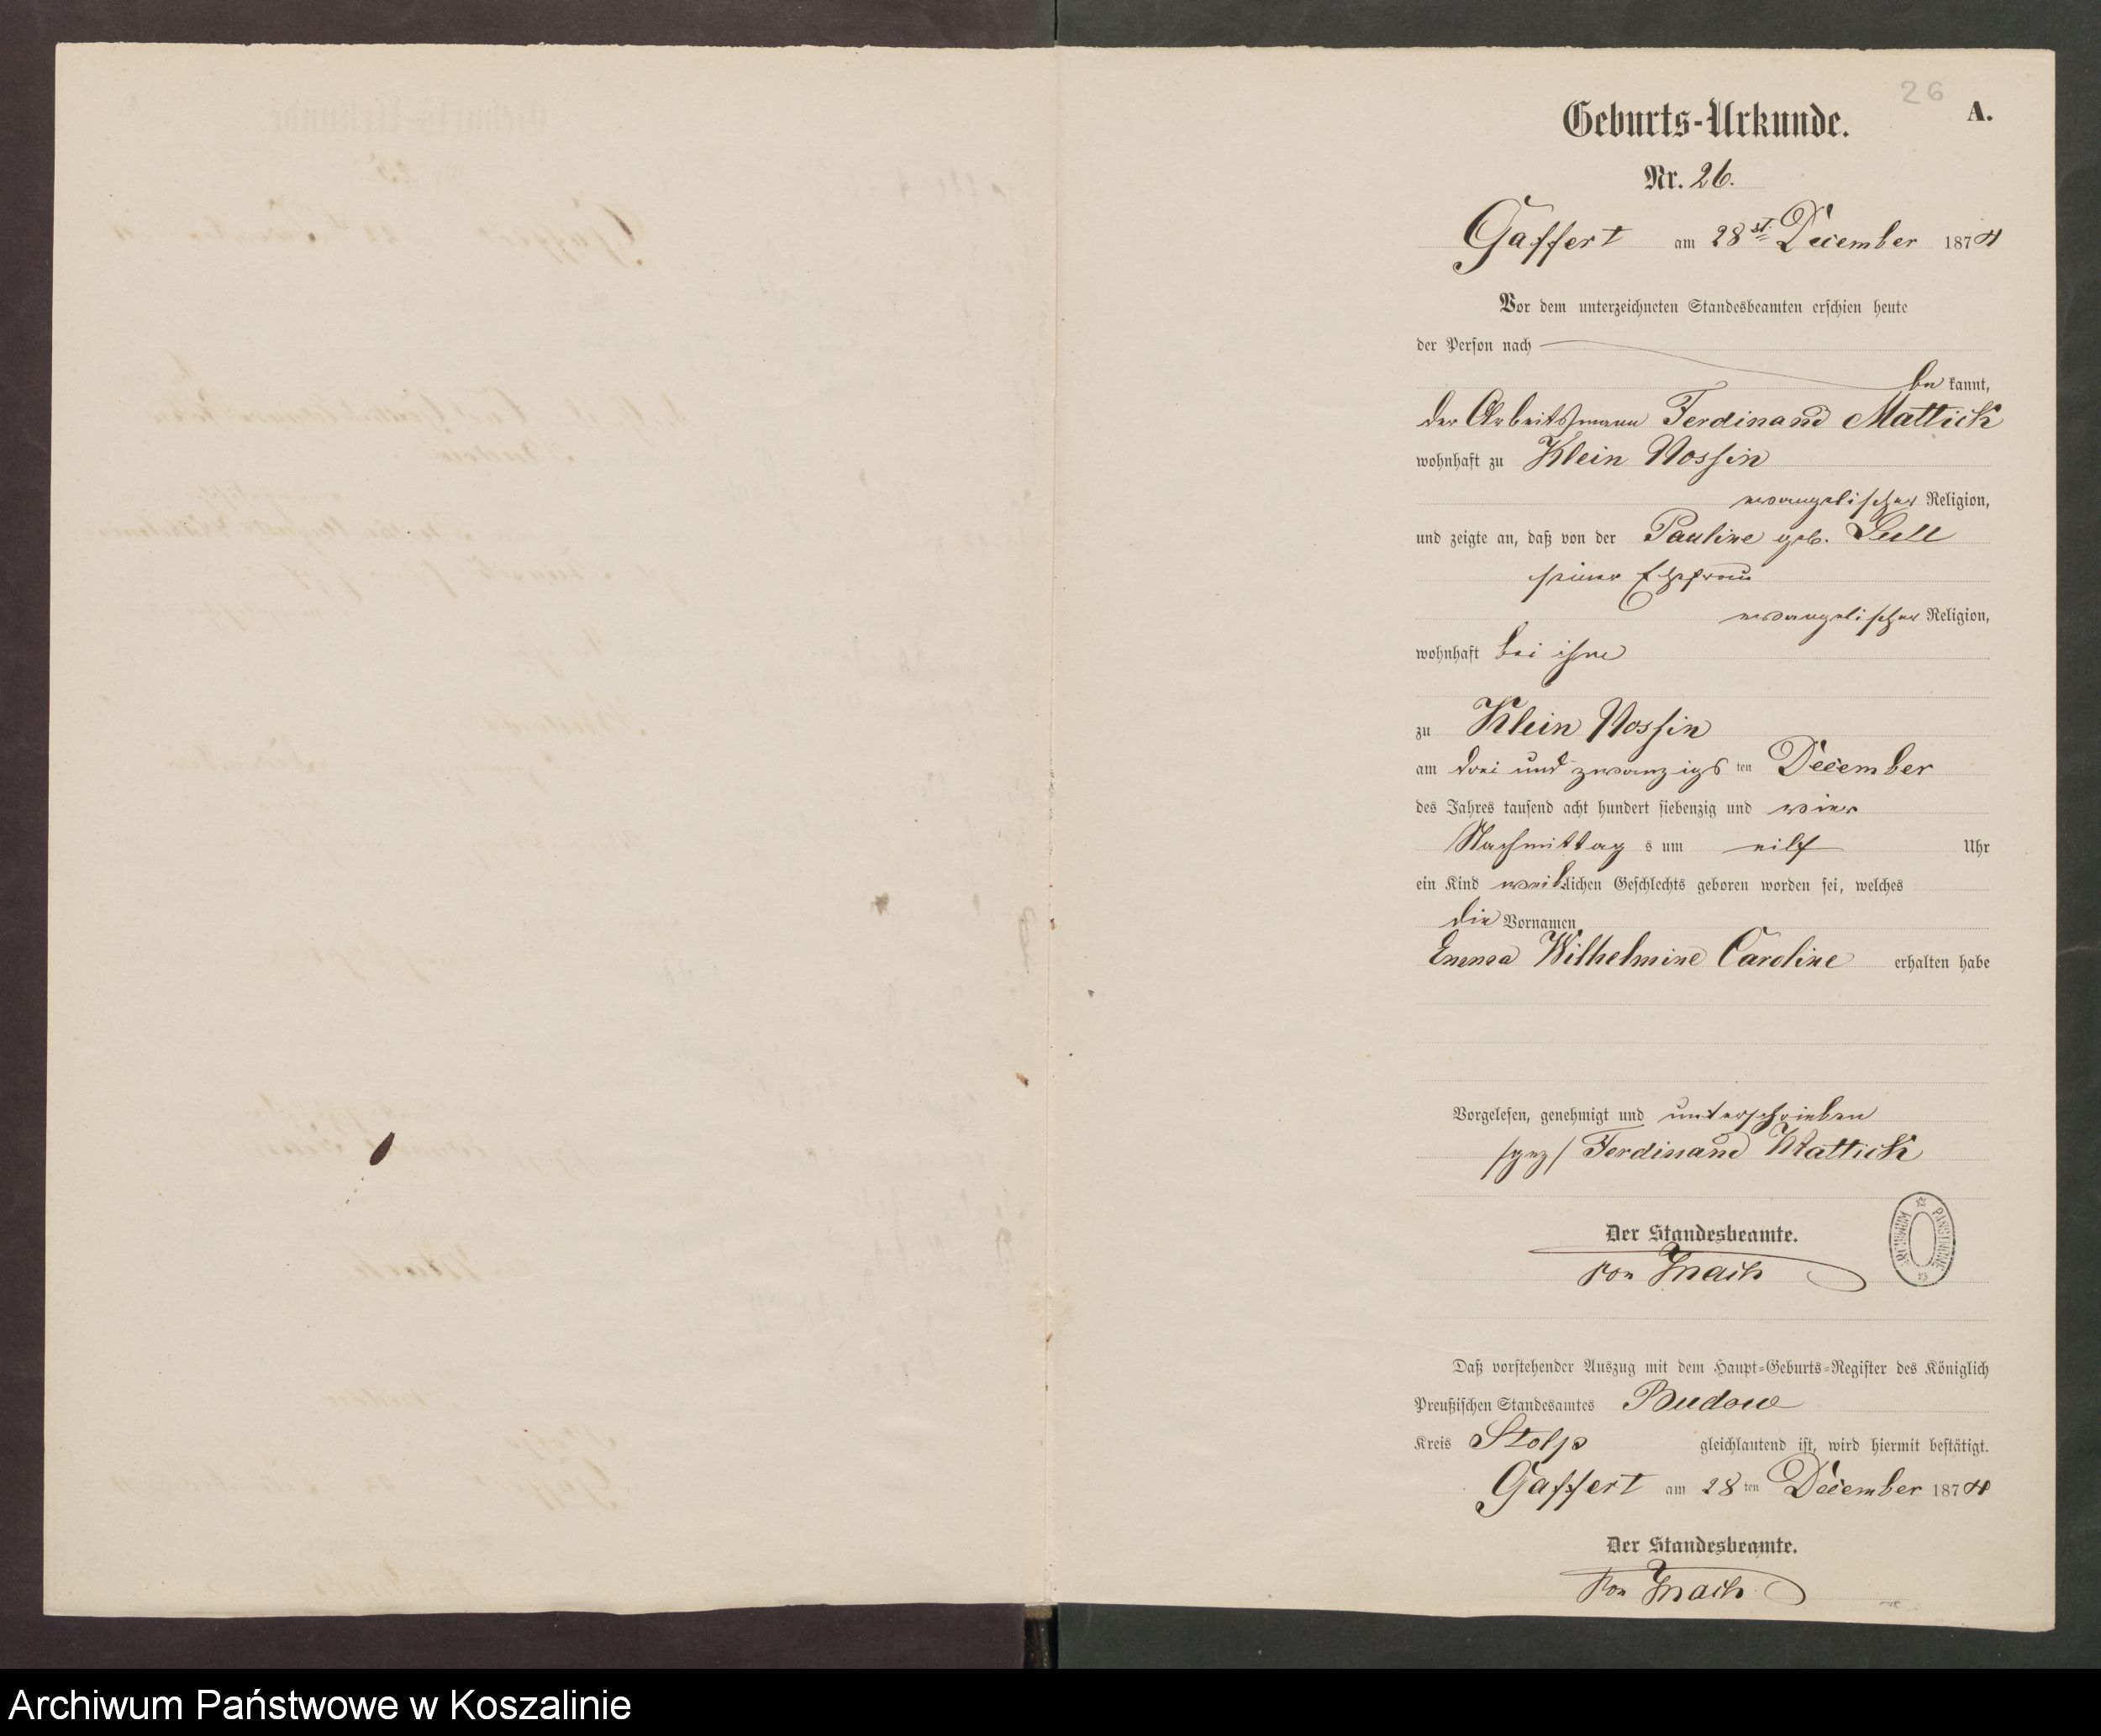 26
Geburts-Urkunde. A.
Nr. 26.
Gaffert am 28st December 1874
Vor dem unterzeichneten Standesbeamten erschien heute
der Person nach
be kannt,
der Arbeitsmann Ferdinand Mattick
wohnhaft zu Klein Nossin
evangelischer Religion,
und zeigte an, daß von der Pauline geb. Lull
seiner Ehefrau
evangelischer Religion,
wohnhaft bei ihm
zu Klein Nossin
am drei und zwanzigs ten December
des Jahres tausend acht hundert siebenzig und vier
Nachmittag s um eilf Uhr
ein Kind weiblichen Geschlechts geboren worden sei, welches
die Vornamen
Emma Wilhelmine Caroline erhalten habe
Vorgelesen, genehmigt und unterschrieben
/gez/ Ferdinand Mattick
Der Standesbeamte.
von Mach
ARCHIWUM PAŃSTWOWE
Daß vorstehender Auszug mit dem Haupt-Geburts-Register des Königlich
Preußischen Standesamtes Budow
Kreis Stolp gleichlautend ist, wird hiermit bestätigt.
Gaffert am 28 ten December 1874
Der Standesbeamte.
von Mach
Archiwum Państwowe w Koszalinie